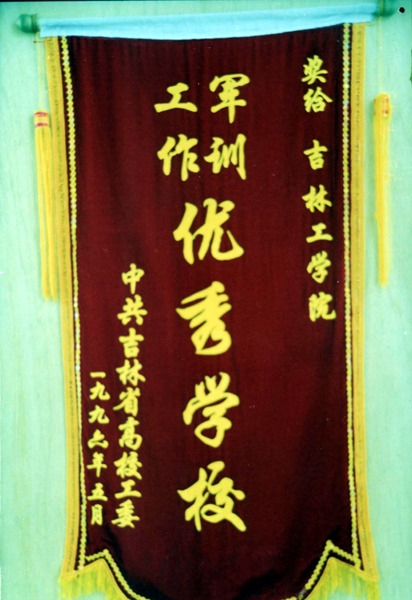 奖给 吉林工学院
军训
工作
优秀学校
中共吉林省高校工委
一九九六年五月